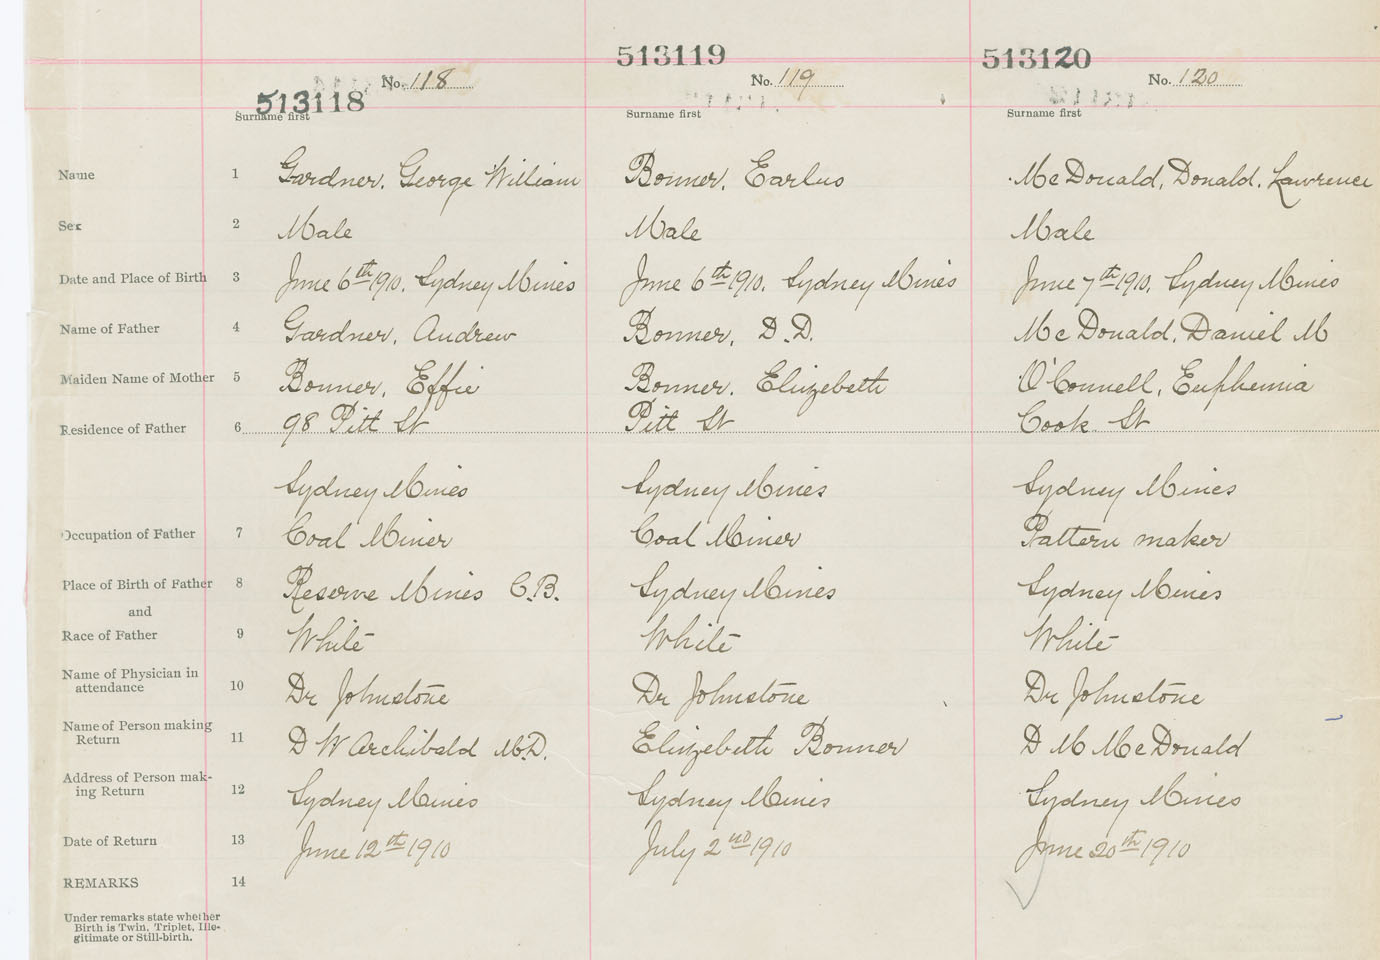 513119
513120
No. 118
No. 119
No. 120
513118
Surname first
Surname first
Surname first
Name 1 Gardner, George William Bonner, Earlus McDonald, Donald, Lawrence
Sex 2 Male Male Male
Date and Place of Birth 3 June 6th 1910, Sydney Mines June 6th 1910, Sydney Mines June 7th 1910, Sydney Mines
Name of Father 4 Gardner, Andrew Bonner, D.D. McDonald, Daniel M
Maiden Name of Mother 5 Bonner, Effie Bonner, Elizebeth O'Connell, Euphemia
Residence of Father 6 98 Pitt St Pitt St Cook St
Sydney Mines Sydney Mines Sydney Mines
Occupation of Father 7 Coal Miner Coal Miner Pattern maker
Place of Birth of Father 8 Reserve Mines C.B. Sydney Mines Sydney Mines
and
Race of Father 9 White White White
Name of Physician in
attendance 10 Dr Johnstone Dr Johnstone Dr Johnstone
Name of Person making
Return 11 D W Archibald M.D. Elizebeth Bonner D M McDonald
Address of Person mak-
ing Return 12 Sydney Mines Sydney Mines Sydney Mines
Date of Return 13 June 12th 1910 July 2nd 1910 June 20th 1910
REMARKS 14
Under remarks state whether
Birth is Twin, Triplet, Ille-
gitimate or Still-birth.